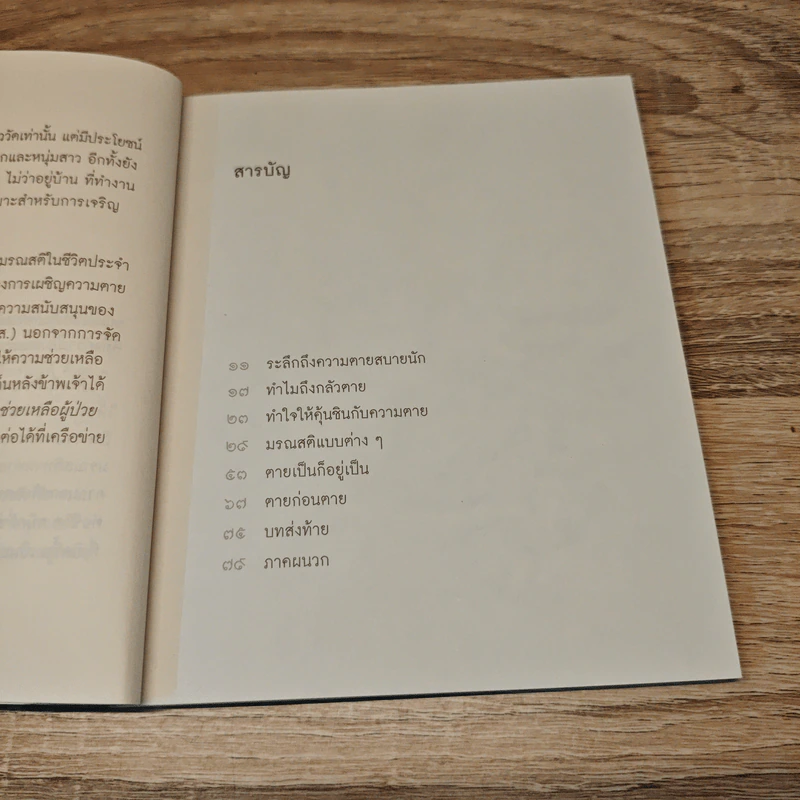 วัดเท่านั้น แต่มีประโยชน์
และหนุ่มสาว อีกทั้งยัง
ไม่ว่าอยู่บ้าน ที่ทำงาน
สำหรับการเจริญ
มรณสติในชีวิตประจำ
การเผชิญความตาย
ความสนับสนุนของ
ส.) นอกจากการจัด
ให้ความช่วยเหลือ
หลังข้าพเจ้าได้
ช่วยเหลือผู้ป่วย
ต่อได้ที่เครือข่าย
สารบัญ
๑๑ ระลึกถึงความตายสบายนัก
๑๗ ทำไมถึงกลัวตาย
๒๓ ทำใจให้คุ้นชินกับความตาย
๒๙ มรณสติแบบต่าง ๆ
๕๓ ตายเป็นก็อยู่เป็น
๖๗ ตายก่อนตาย
๗๕ บทส่งท้าย
๗๙ ภาคผนวก